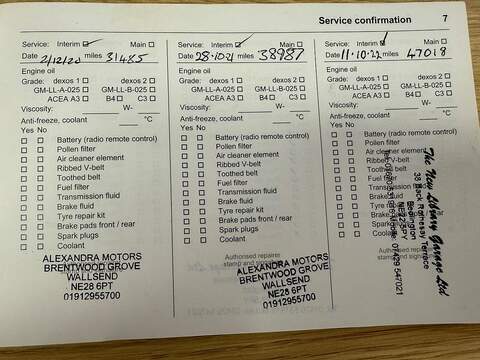 Service confirmation 7
Service: Interim ☑ Main ☐
Date 2/12/20 miles 31485
Engine oil
Grade: dexos 1 ☐ dexos 2 ☐
GM-LL-A-025 ☐ GM-LL-B-025 ☐
ACEA A3 ☐ B4 ☐ C3 ☐
Viscosity: W-
Anti-freeze, coolant °C
Yes No
☐ ☐ Battery (radio remote control)
☐ ☐ Pollen filter
☐ ☐ Air cleaner element
☐ ☐ Ribbed V-belt
☐ ☐ Toothed belt
☐ ☐ Fuel filter
☐ ☐ Transmission fluid
☐ ☐ Brake fluid
☐ ☐ Tyre repair kit
☐ ☐ Brake pads front / rear
☐ ☐ Spark plugs
☐ ☐ Coolant
ALEXANDRA MOTORS
BRENTWOOD GROVE
WALLSEND
NE28 6PT
01912955700
Service: Interim ☑ Main ☐
Date 28·10·21 miles 38987
Engine oil
Grade: dexos 1 ☐ dexos 2 ☐
GM-LL-A-025 ☐ GM-LL-B-025 ☐
ACEA A3 ☐ B4 ☐ C3 ☐
Viscosity: W-
Anti-freeze, coolant °C
Yes No
☐ ☐ Battery (radio remote control)
☐ ☐ Pollen filter
☐ ☐ Air cleaner element
☐ ☐ Ribbed V-belt
☐ ☐ Toothed belt
☐ ☐ Fuel filter
☐ ☐ Transmission fluid
☐ ☐ Brake fluid
☐ ☐ Tyre repair kit
☐ ☐ Brake pads front / rear
☐ ☐ Spark plugs
☐ ☐ Coolant
Authorised repairer
stamp and
ALEXANDRA MOTORS
BRENTWOOD GROVE
WALLSEND
NE28 6PT
01912955700
Service: Interim ☑ Main ☐
Date 11·10·22 miles 47018
Engine oil
Grade: dexos 1 ☐ dexos 2 ☐
GM-LL-A-025 ☐ GM-LL-B-025 ☐
ACEA A3 ☐ B4 ☐ C3 ☐
Viscosity: W-
Anti-freeze, coolant °C
Yes No
☐ ☐ Battery (radio remote control)
☐ ☐ Pollen filter
☐ ☐ Air cleaner element
☐ ☐ Ribbed V-belt
☐ ☐ Toothed belt
☐ ☐ Fuel filter
☐ ☐ Transmission fluid
☐ ☐ Brake fluid
☐ ☐ Tyre repair kit
☐ ☐ Brake pads front / rear
☐ ☐ Spark plugs
☐ ☐ Coolant
Authorised repairer
stamp and
The New Library Garage Ltd
38 Back Rothesay Terrace
Bedlington
NE22 5PY
547021